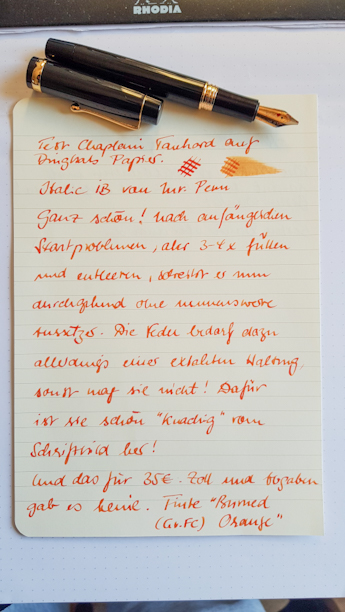 RHODIA
Test Chaplain Fanhord auf
Papier.
Italic iB von Mr. Penn
Ganz schön! nach anfänglichen
Startproblemen, aber 3-4x füllen
und entleeren, schreibt er nun
durchgehend ohne nennenswerte
Aussetzer. Die Feder bedarf dazu
allerdings einer exakten Haltung,
sonst mag sie nicht! Dafür
ist sie schön "knackig" vom
Schriftbild her!
Und das für 35€. Zoll und Abgaben
gab es keine. Tinte "Burned
(Gv.FC) Orange"